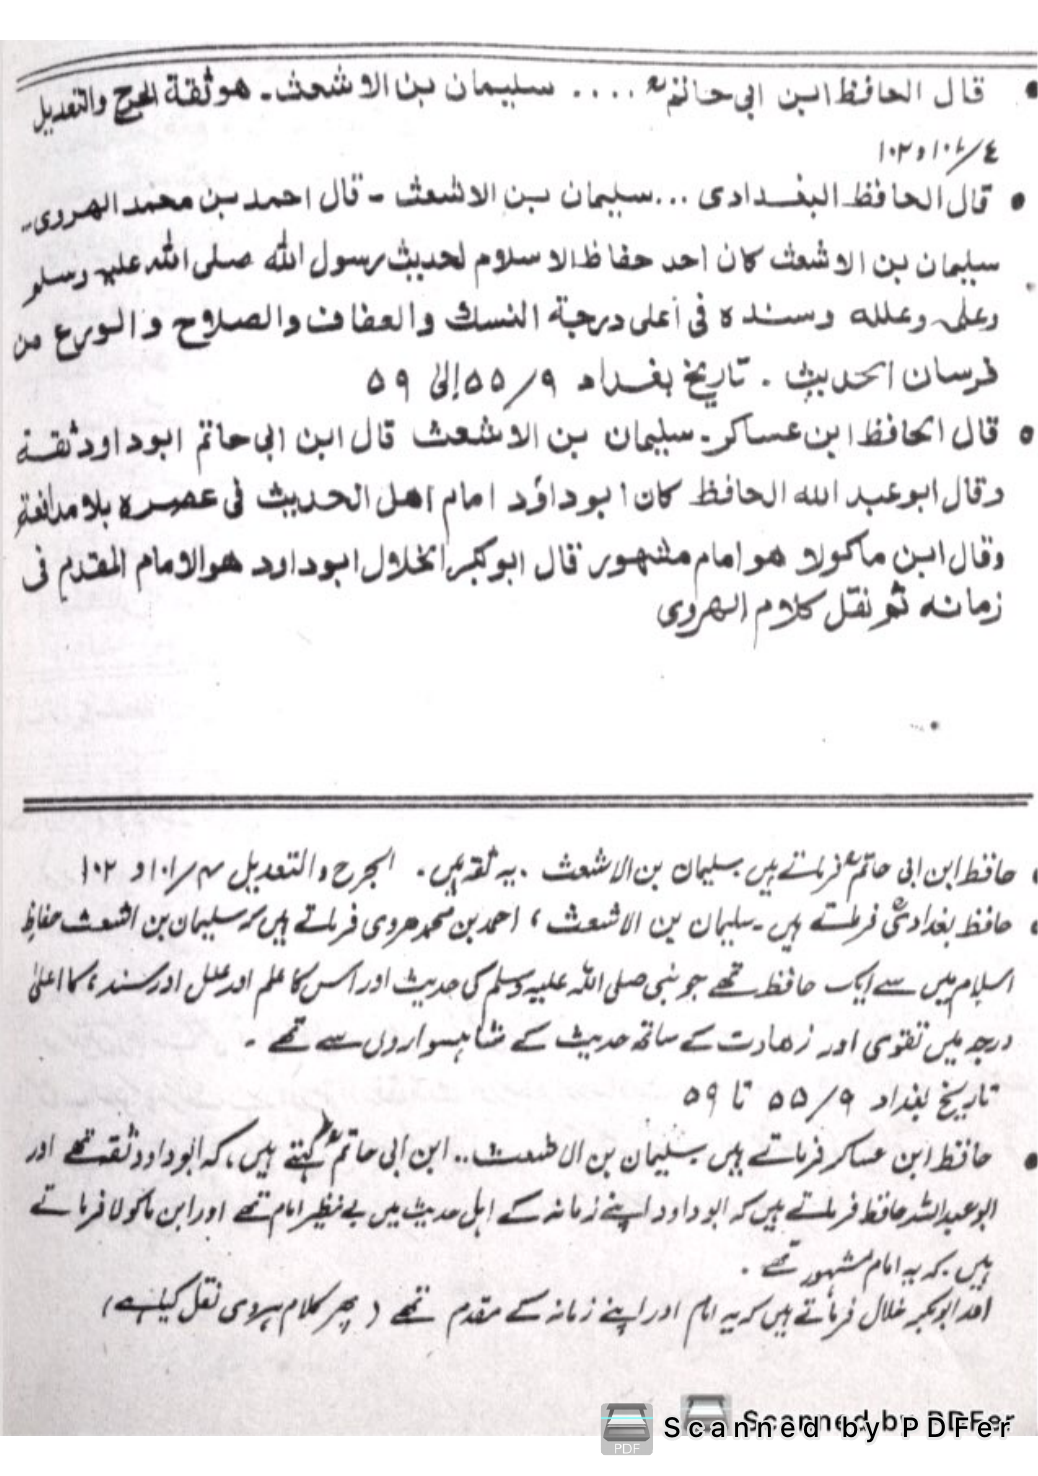 • قال الحافظ ابن ابی حاتمؒ .... سلیمان بن الاشعث۔ هو ثقة الجرح والتعدیل
٤/١٠١ و ١٠٢
• قال الحافظ البغدادی ...سلیمان بن الاشعث - قال احمد بن محمد الهروی۔
سلیمان بن الاشعث کان احد حفاظ الاسلام لحدیث رسول الله صلی الله علیه وسلم
وعلمه وعلله وسنده فی اعلی درجة النسك والعفاف والصلاح والورع من
فرسان الحدیث . تاریخ بغداد ٩/٥٥ إلی ٥٩
• قال الحافظ ابن عساکر۔ سلیمان بن الاشعث قال ابن ابی حاتم ابوداود ثقة
وقال ابو عبد الله الحافظ کان ابوداؤد امام اهل الحدیث فی عصره بلا مدافعة
وقال ابن ماکولا هو امام مشهور قال ابوبکر الخلال ابوداود هو الامام المقدم فی
زمانه ثم نقل کلام الهروی
حافظ ابن ابی حاتمؒ فرماتے ہیں سلیمان بن الاشعث . یہ ثقہ ہیں . الجرح والتعدیل ۴/۱۰۱ و ۱۰۲
حافظ بغدادیؒ فرماتے ہیں ۔ سلیمان بن الاشعث ، احمد بن محمد هروی فرماتے ہیں کہ سلیمان بن اشعث حفاظ
اسلام میں سے ایک حافظ تھے جو نبی صلی اللہ علیہ وسلم کی حدیث اور اس کا علم اور علل اور سند ، کا اعلیٰ
درجہ میں تقوی اور زھادت کے ساتھ حدیث کے شاہسواروں سے تھے ۔
تاریخ بغداد ۹/۵۵ تا ۵۹
• حافظ ابن عساکر فرماتے ہیں سلیمان بن الاشعث .. ابن ابی حاتمؒ کہتے ہیں ، کہ ابوداود ثقہ تھے اور
ابو عبداللہ حافظ فرماتے ہیں کہ ابوداود اپنے زمانہ کے اہل حدیث میں بے نظیر امام تھے اور ابن ماکولا فرماتے
ہیں . کہ یہ امام مشہور تھے .
اور ابوبکر خلال فرماتے ہیں کہ یہ امام اور اپنے زمانہ کے مقدم تھے ( پھر کلام ہروی نقل کیا ہے )
Scanned by PDFer
PDF
Scanned by PDFer